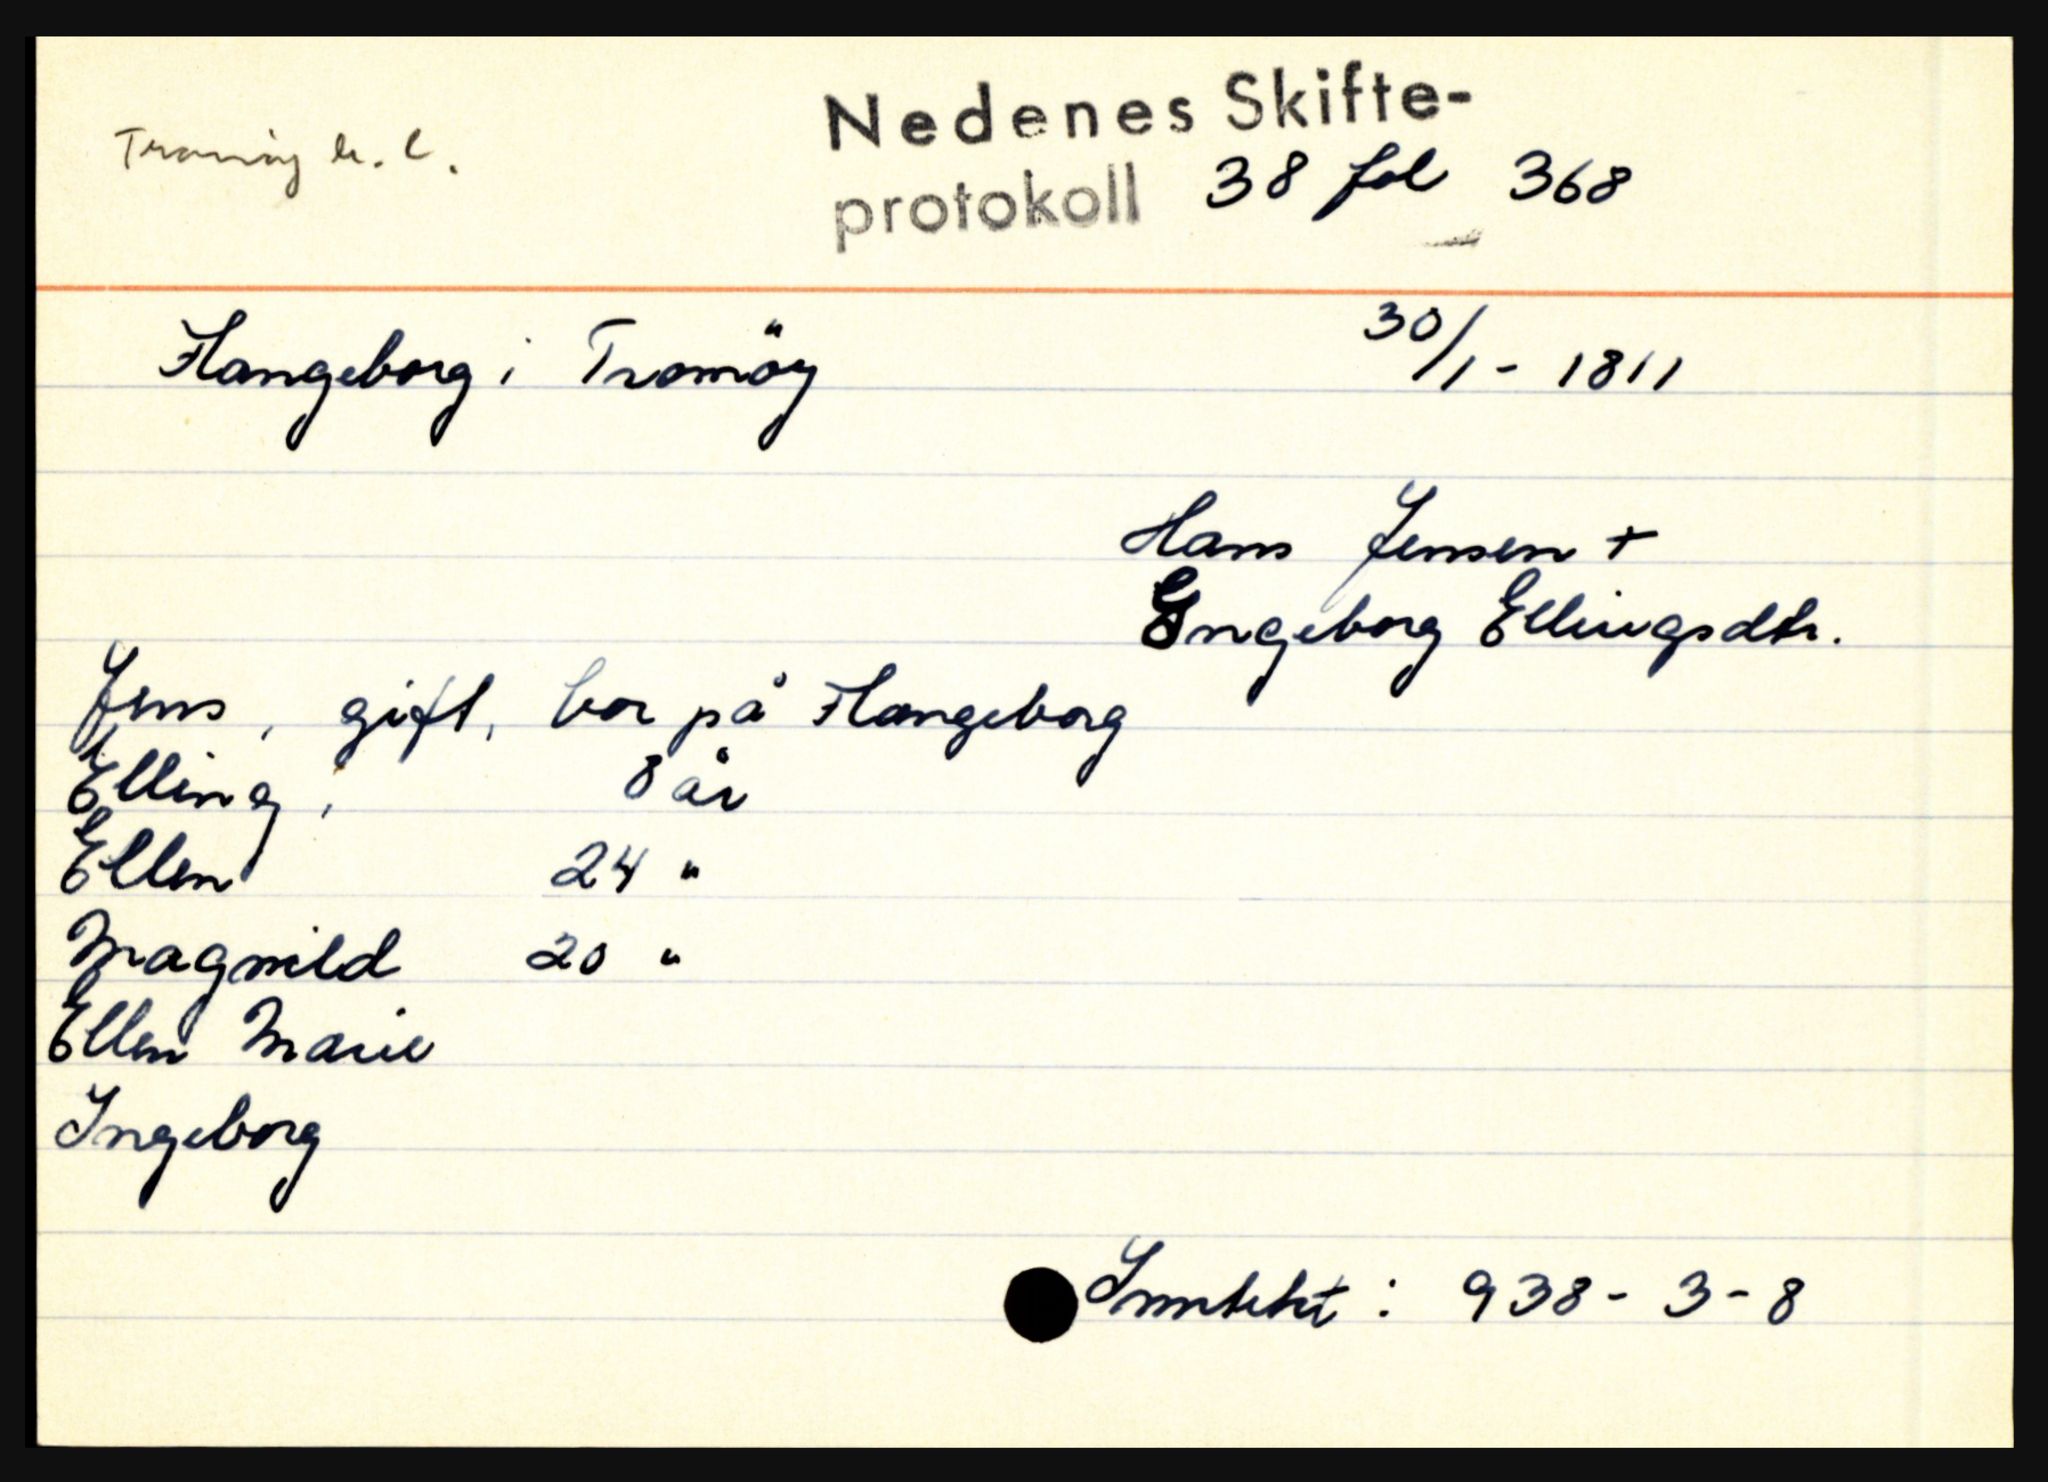 Tromöy h. l.
Nedenes Skifte-
protokoll 38 fol 368
Hangeborg i Tromöy 30/1 - 1811
Hans Jensen +
Ingeborg Ellingsdtr.
Jens, gift, bor på Hangeborg
Elling, 8 år
Ellen 24 "
Magnild 20 "
Ellen Marie
Ingeborg
Inntekt : 938 - 3 - 8